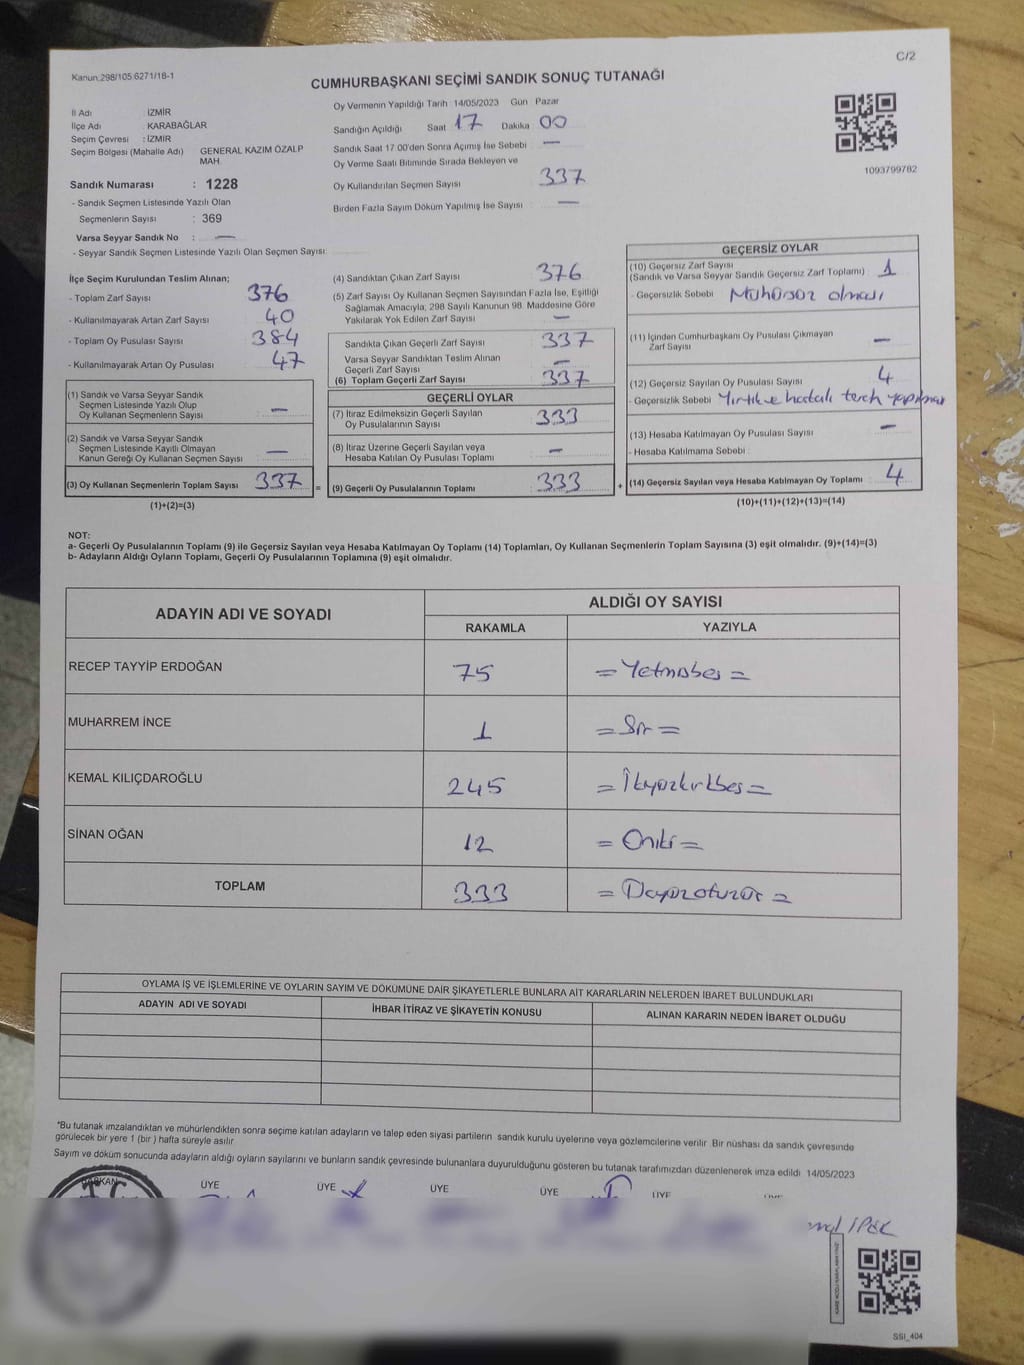 C/2
Kanun:298/105 6271/18-1
CUMHURBAŞKANI SEÇİMİ SANDIK SONUÇ TUTANAĞI
İl Adı : İZMİR
İlçe Adı : KARABAĞLAR
Seçim Çevresi : İZMİR
Seçim Bölgesi (Mahalle Adı) GENERAL KAZIM ÖZALP MAH.
Sandık Numarası : 1228
- Sandık Seçmen Listesinde Yazılı Olan
Seçmenlerin Sayısı : 369
Varsa Seyyar Sandık No : —
- Seyyar Sandık Seçmen Listesinde Yazılı Olan Seçmen Sayısı:
Oy Vermenin Yapıldığı Tarih 14/05/2023 Gün Pazar
Sandığın Açıldığı Saat 17 Dakika 00
Sandık Saat 17 00'den Sonra Açımış İse Sebebi —
Oy Verme Saati Bitiminde Sırada Bekleyen ve
Oy Kullandırılan Seçmen Sayısı 337
Birden Fazla Sayım Döküm Yapılmış İse Sayısı —
1093799782
İlçe Seçim Kurulundan Teslim Alınan;
- Toplam Zarf Sayısı 376
- Kullanılmayarak Artan Zarf Sayısı 40
- Toplam Oy Pusulası Sayısı 384
- Kullanılmayarak Artan Oy Pusulası 47
(1) Sandık ve Varsa Seyyar Sandık
Seçmen Listesinde Yazılı Olup
Oy Kullanan Seçmenlerin Sayısı —
(2) Sandık ve Varsa Seyyar Sandık
Seçmen Listesinde Kayıtlı Olmayan
Kanun Gereği Oy Kullanan Seçmen Sayısı —
(3) Oy Kullanan Seçmenlerin Toplam Sayısı 337 =
(1)+(2)=(3)
(4) Sandıktan Çıkan Zarf Sayısı 376
(5) Zarf Sayısı Oy Kullanan Seçmen Sayısından Fazla İse, Eşitliği
Sağlamak Amacıyla, 298 Sayılı Kanunun 98. Maddesine Göre
Yakılarak Yok Edilen Zarf Sayısı —
Sandıkta Çıkan Geçerli Zarf Sayısı 337
Varsa Seyyar Sandıktan Teslim Alınan
Geçerli Zarf Sayısı —
(6) Toplam Geçerli Zarf Sayısı 337
GEÇERLİ OYLAR
(7) İtiraz Edilmeksizin Geçerli Sayılan
Oy Pusulalarının Sayısı 333
(8) İtiraz Üzerine Geçerli Sayılan veya
Hesaba Katılan Oy Pusulası Toplamı —
(9) Geçerli Oy Pusulalarının Toplamı 333 +
GEÇERSİZ OYLAR
(10) Geçersiz Zarf Sayısı
(Sandık ve Varsa Seyyar Sandık Geçersiz Zarf Toplamı) : 1
- Geçersizlik Sebebi Mühürsüz olması
(11) İçinden Cumhurbaşkanı Oy Pusulası Çıkmayan
Zarf Sayısı —
(12) Geçersiz Sayılan Oy Pusulası Sayısı 4
- Geçersizlik Sebebi Yırtık ve hatalı terch
(13) Hesaba Katılmayan Oy Pusulası Sayısı —
- Hesaba Katılmama Sebebi :
(14) Geçersiz Sayılan veya Hesaba Katılmayan Oy Toplamı 4
(10)+(11)+(12)+(13)=(14)
NOT:
a- Geçerli Oy Pusulalarının Toplamı (9) ile Geçersiz Sayılan veya Hesaba Katılmayan Oy Toplamı (14) Toplamları, Oy Kullanan Seçmenlerin Toplam Sayısına (3) eşit olmalıdır. (9)+(14)=(3)
b- Adayların Aldığı Oyların Toplamı, Geçerli Oy Pusulalarının Toplamına (9) eşit olmalıdır.
ADAYIN ADI VE SOYADI ALDIĞI OY SAYISI
RAKAMLA YAZIYLA
RECEP TAYYİP ERDOĞAN 75 = Yetmişbeş =
MUHARREM İNCE 1 = Bir =
KEMAL KILIÇDAROĞLU 245 = İkiyüzkırkbeş =
SİNAN OĞAN 12 = Oniki =
TOPLAM 333 = Üçyüzotuzüç =
OYLAMA İŞ VE İŞLEMLERİNE VE OYLARIN SAYIM VE DÖKÜMÜNE DAİR ŞİKAYETLERLE BUNLARA AİT KARARLARIN NELERDEN İBARET BULUNDUKLARI
ADAYIN ADI VE SOYADI İHBAR İTİRAZ VE ŞİKAYETİN KONUSU ALINAN KARARIN NEDEN İBARET OLDUĞU
*Bu tutanak imzalandıktan ve mühürlendikten sonra seçime katılan adayların ve talep eden siyasi partilerin sandık kurulu üyelerine veya gözlemcilerine verilir Bir nüshası da sandık çevresinde
görülecek bir yere 1 (bir ) hafta süreyle asılır
Sayım ve döküm sonucunda adayların aldığı oyların sayılarını ve bunların sandık çevresinde bulunanlara duyurulduğunu gösteren bu tutanak tarafımızdan düzenlenerek imza edildi 14/05/2023
BAŞKAN ÜYE ÜYE ÜYE ÜYE ÜYE
İPEK
SSI_404